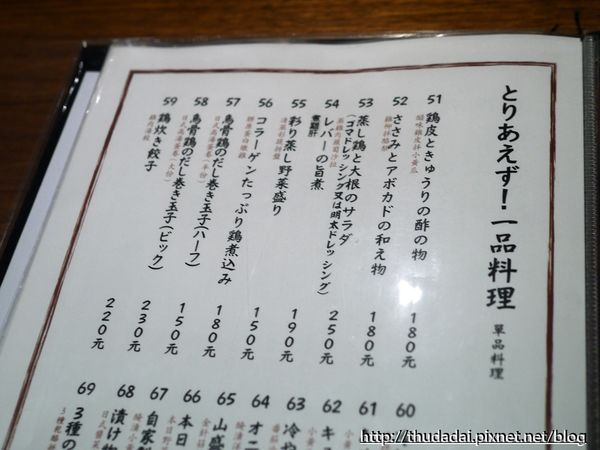 とりあえず!一品料理 單品料理
51 鶏皮ときゅうりの酢の物 180元
52 ささみとアボカドの和え物 180元
雞柳拌酪梨
53 蒸し鶏と大根のサラダ 250元
(ゴマドレッシング又は明太ドレッシング)
蒸雞肉蘿蔔沙拉
54 レバーの旨煮 190元
55 彩り蒸し野菜盛り 150元
56 コラーゲンたっぷり鶏煮込み 180元
膠原蛋白燉雞
57 烏骨鶏のだし巻き玉子(ハーフ) 150元
日式高湯蛋卷(半份)
58 烏骨鶏のだし巻き玉子(ビック) 230元
日式高湯蛋卷(大份)
59 鶏炊き餃子 220元
雞肉湯餃
60
61
62 キ
63 冷や
64 オニ
65 山盛
66 本日
67 自家
68 漬け物
69 3種の
http://thudadai.pixnet.net/blog